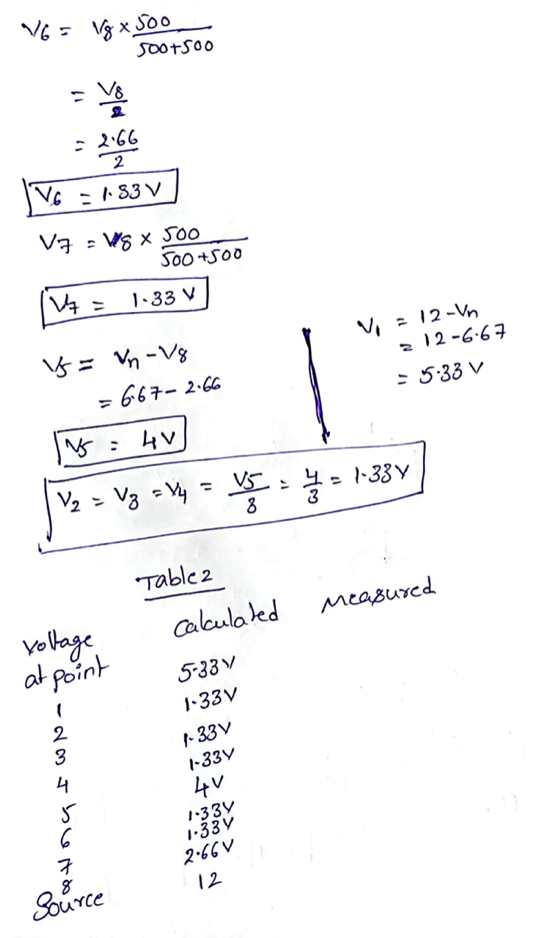 V6 = V8 × 500 / 500+500
= V8 / 2
= 2.66 / 2
V6 = 1.33 V
V7 = V8 × 500 / 500+500
V7 = 1.33 V
V5 = Vn - V8
= 6.67 - 2.66
V5 = 4V
V1 = 12 - Vn
= 12 - 6.67
= 5.33 V
V2 = V3 = V4 = V5 / 3 = 4 / 3 = 1.33V
Table 2
Voltage at point calculated Measured
1 5.33V
2 1.33V
3 1.33V
4 1.33V
5 4V
6 1.33V
7 1.33V
8 2.66V
Source 12